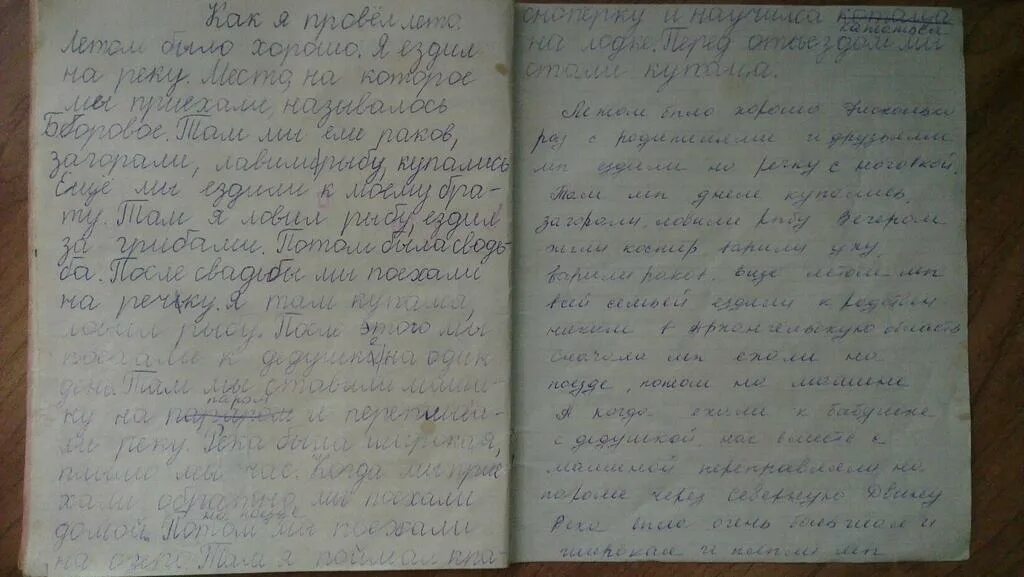 Как я провёл лето.
Летом было хорошо. Я ездил
на реку. Место, на которое
мы приехали, называлось
Бборовое. Там ми ели раков,
загорали, лавили рыбу, купались
Еще ми ездили к моему бра-
ту. Там я ловил рыбу, ездил
за грибами. Потом была свадь-
ба. После свадьбы ми поехали
на речку. Я там купался,
ловил рыбу. После этого мы
поехали к дедушке на один
день. Там мы ставили маши-
паром
ну на и переплыва-
ли реку. Река была широкая,
плыли мы час. Когда ми прие-
хали обратно, ми поехали
на поезде
домой. Потом мы поехали
на озеро. Там я поймал кра-
сноперку и научился
кататься
на лодке. Перед отъездом ми
стали купатся.
Летом было хорошо
раз с родителями и друзьями
мп ездили на речку с ночовкой.
Там мп днем купались,
загорали, ловили рыбу Вечером
жгли костер варили уху,
варили раков. Еще летом мп
всей семьей ездили к родствен
никам в Архангельскую область
Сначала мп ехали на
поезде, потом на машине
Я когда ехали к бабушке
с дедушкой, нас вместе с
машиной переправляли на
пароме через Северную Двину
Река была очень большая и
широкая и плыли мп